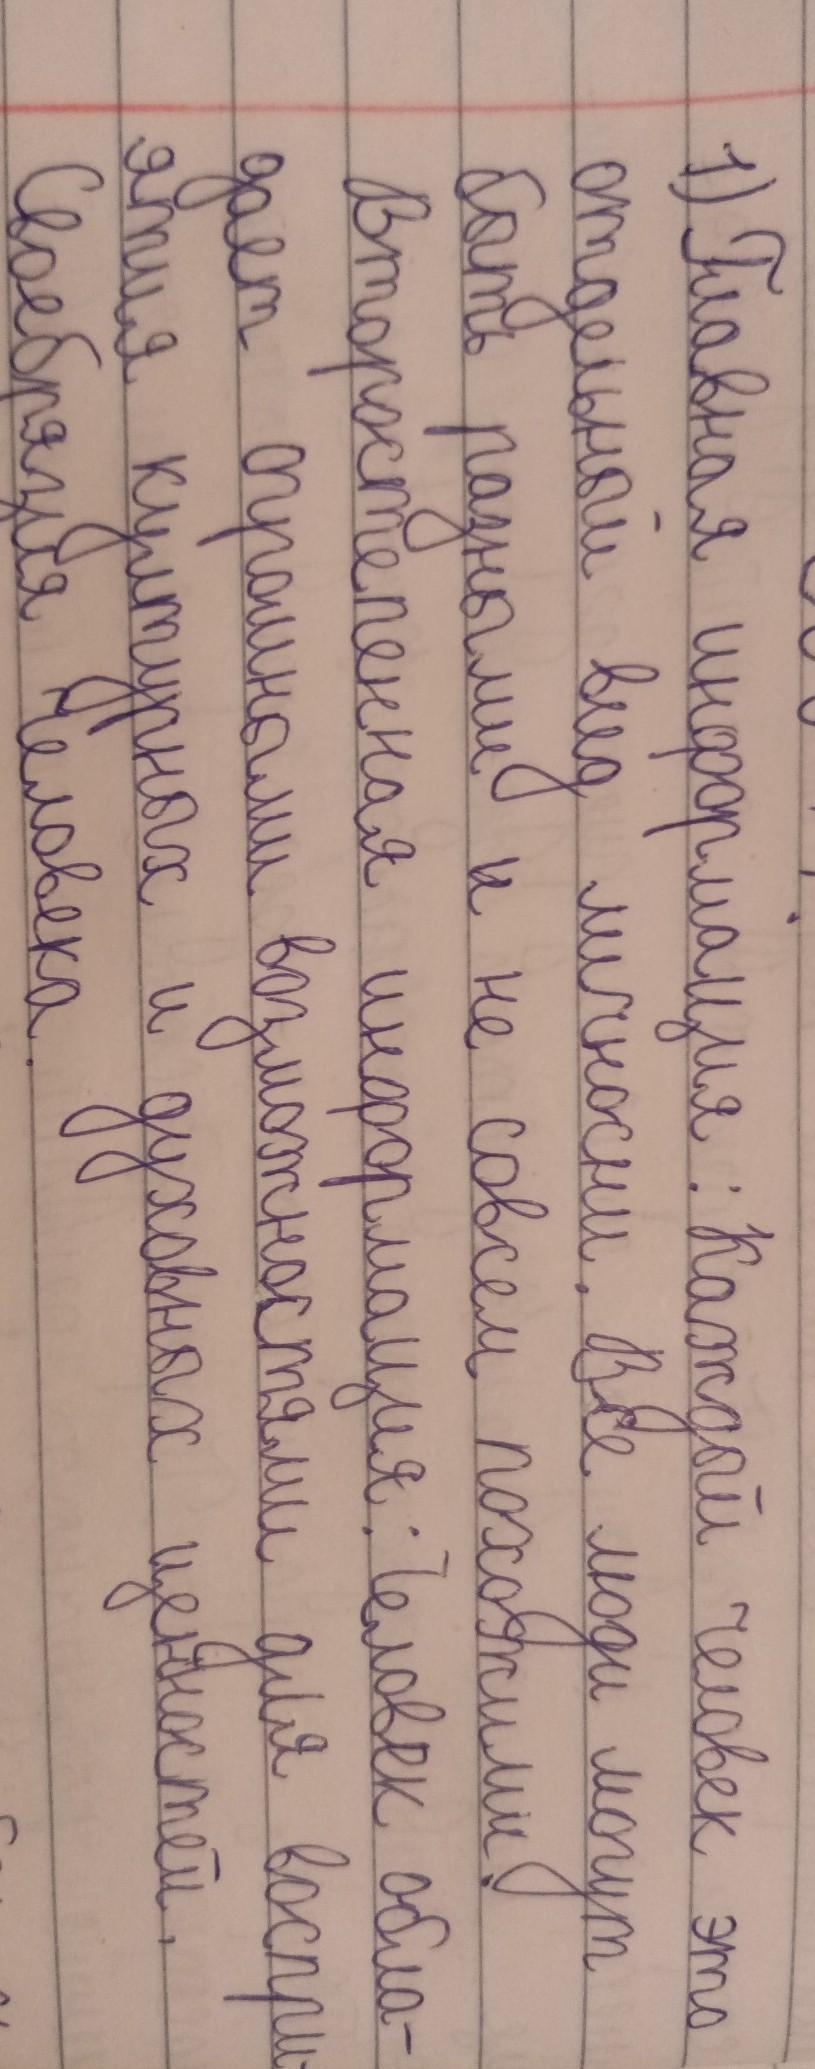 1) Главная информация: Каждый человек это
отдельный вид личносни. Все люди могут
быть разными и не совсем похожими.
Второстепенная информация: Человек обла-
дает огромными возможностями для воспри-
ятия културных и духовных ценностей.
Своебразия человека.